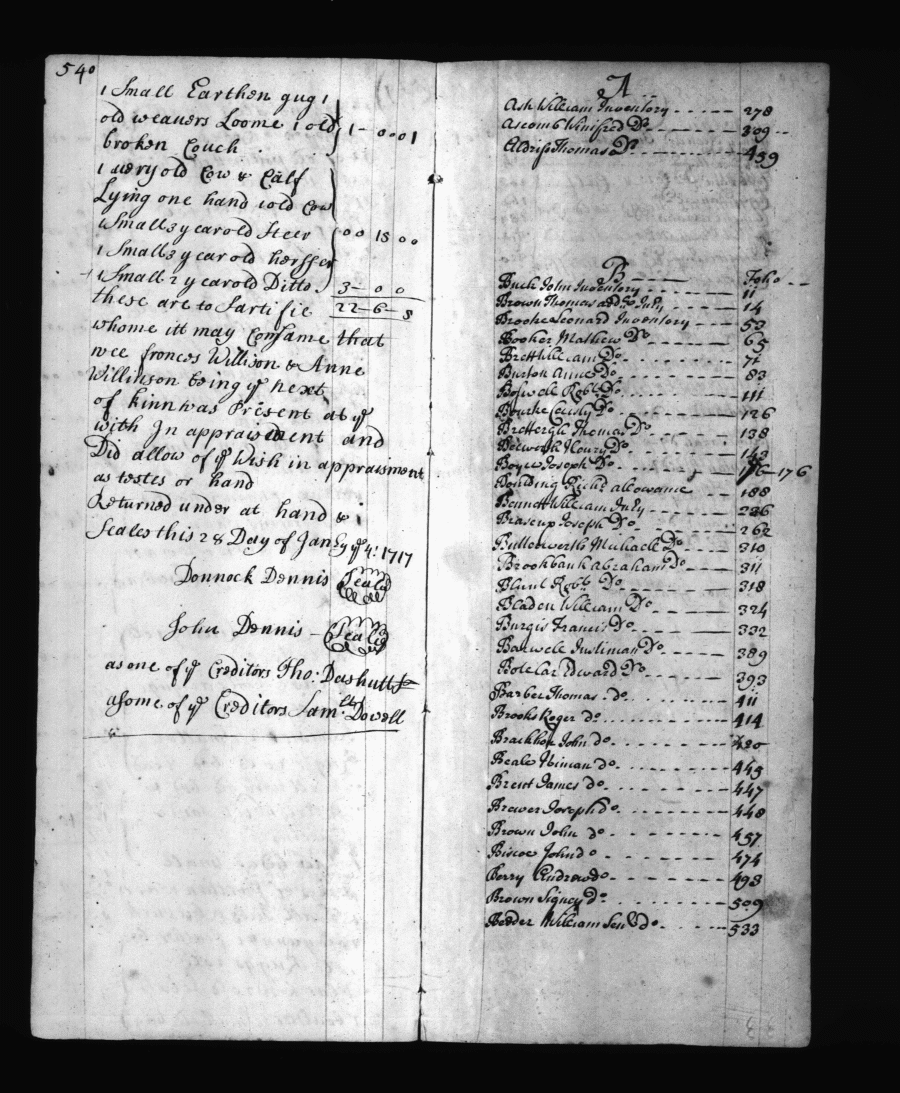 540
1 Small Earthen gug 1
old weavers Loome 1 old } 1 - 0 - 01
broken Couch
1 uery old Cow & Calf
Lying one hand 1 old Cow
1 Small 3 year old Steer } 00 15 00
1 Small 3 year old heffer
1 Small 2 year old Ditto 3 - 0 0
these are to Sartifie 22 - 6 - 8
whome itt may Consame that
wee frances Willison & Anne
Willinson being ye next
of kinn was Present at ye
with In appraisment and
Did allow of ye Wish in appraisment
as testes or hand
Returned under at hand &
Seales this 28 Day of Janry ye 4: 1717
Donnock Dennis Seale
John Dennis - Seale
as one of ye Creditors Tho: Dashutt
as one of ye Creditors Samll Dowell
A
Ash William Inventory - - - - 278
Ascomb Winifred Do - - - - 309 - -
Eldriss Thomas Do - - - - 459
B - - - - Folio - -
Buck John Inventory - - - - 11
Brown Thomas - - - - 14
Brooke Leonard Inventory - - - - 53
Booker Mathew Do - - - - 65
Brett William Do - - - - 71
Burton Anne Do - - - - 83
Boswell Robt Do - - - - 111
Bourke Do - - - - 126
Brettergh Thomas Do - - - - 138
Henry Do - - - - 143
Boyce Joseph Do - - - - 176
Boulding Richd allowance - - - - 188
Bennett William Inty - - - - 226
Joseph Do - - - - 262
Butterworth Michaell Do - - - - 310
Brookbank Abraham Do - - - - 311
Blunt Robt Do - - - - 318
Bladen William Do - - - - 324
Burgis Francis Do - - - - 332
Do - - - - 389
Botelar Edward Do - - - - 393
Barber Thomas Do - - - - 411
Brooks Roger do - - - - 414
John do - - - - 420
Beale Ninian do - - - - 445
Brent James do - - - - 447
Brewer Joseph do - - - - 448
Brown John do - - - - 457
Biscoe John do - - - - 474
Berry Andrew do - - - - 493
Brown Signey do - - - - 509
Beeder William Senr do - - - - 533